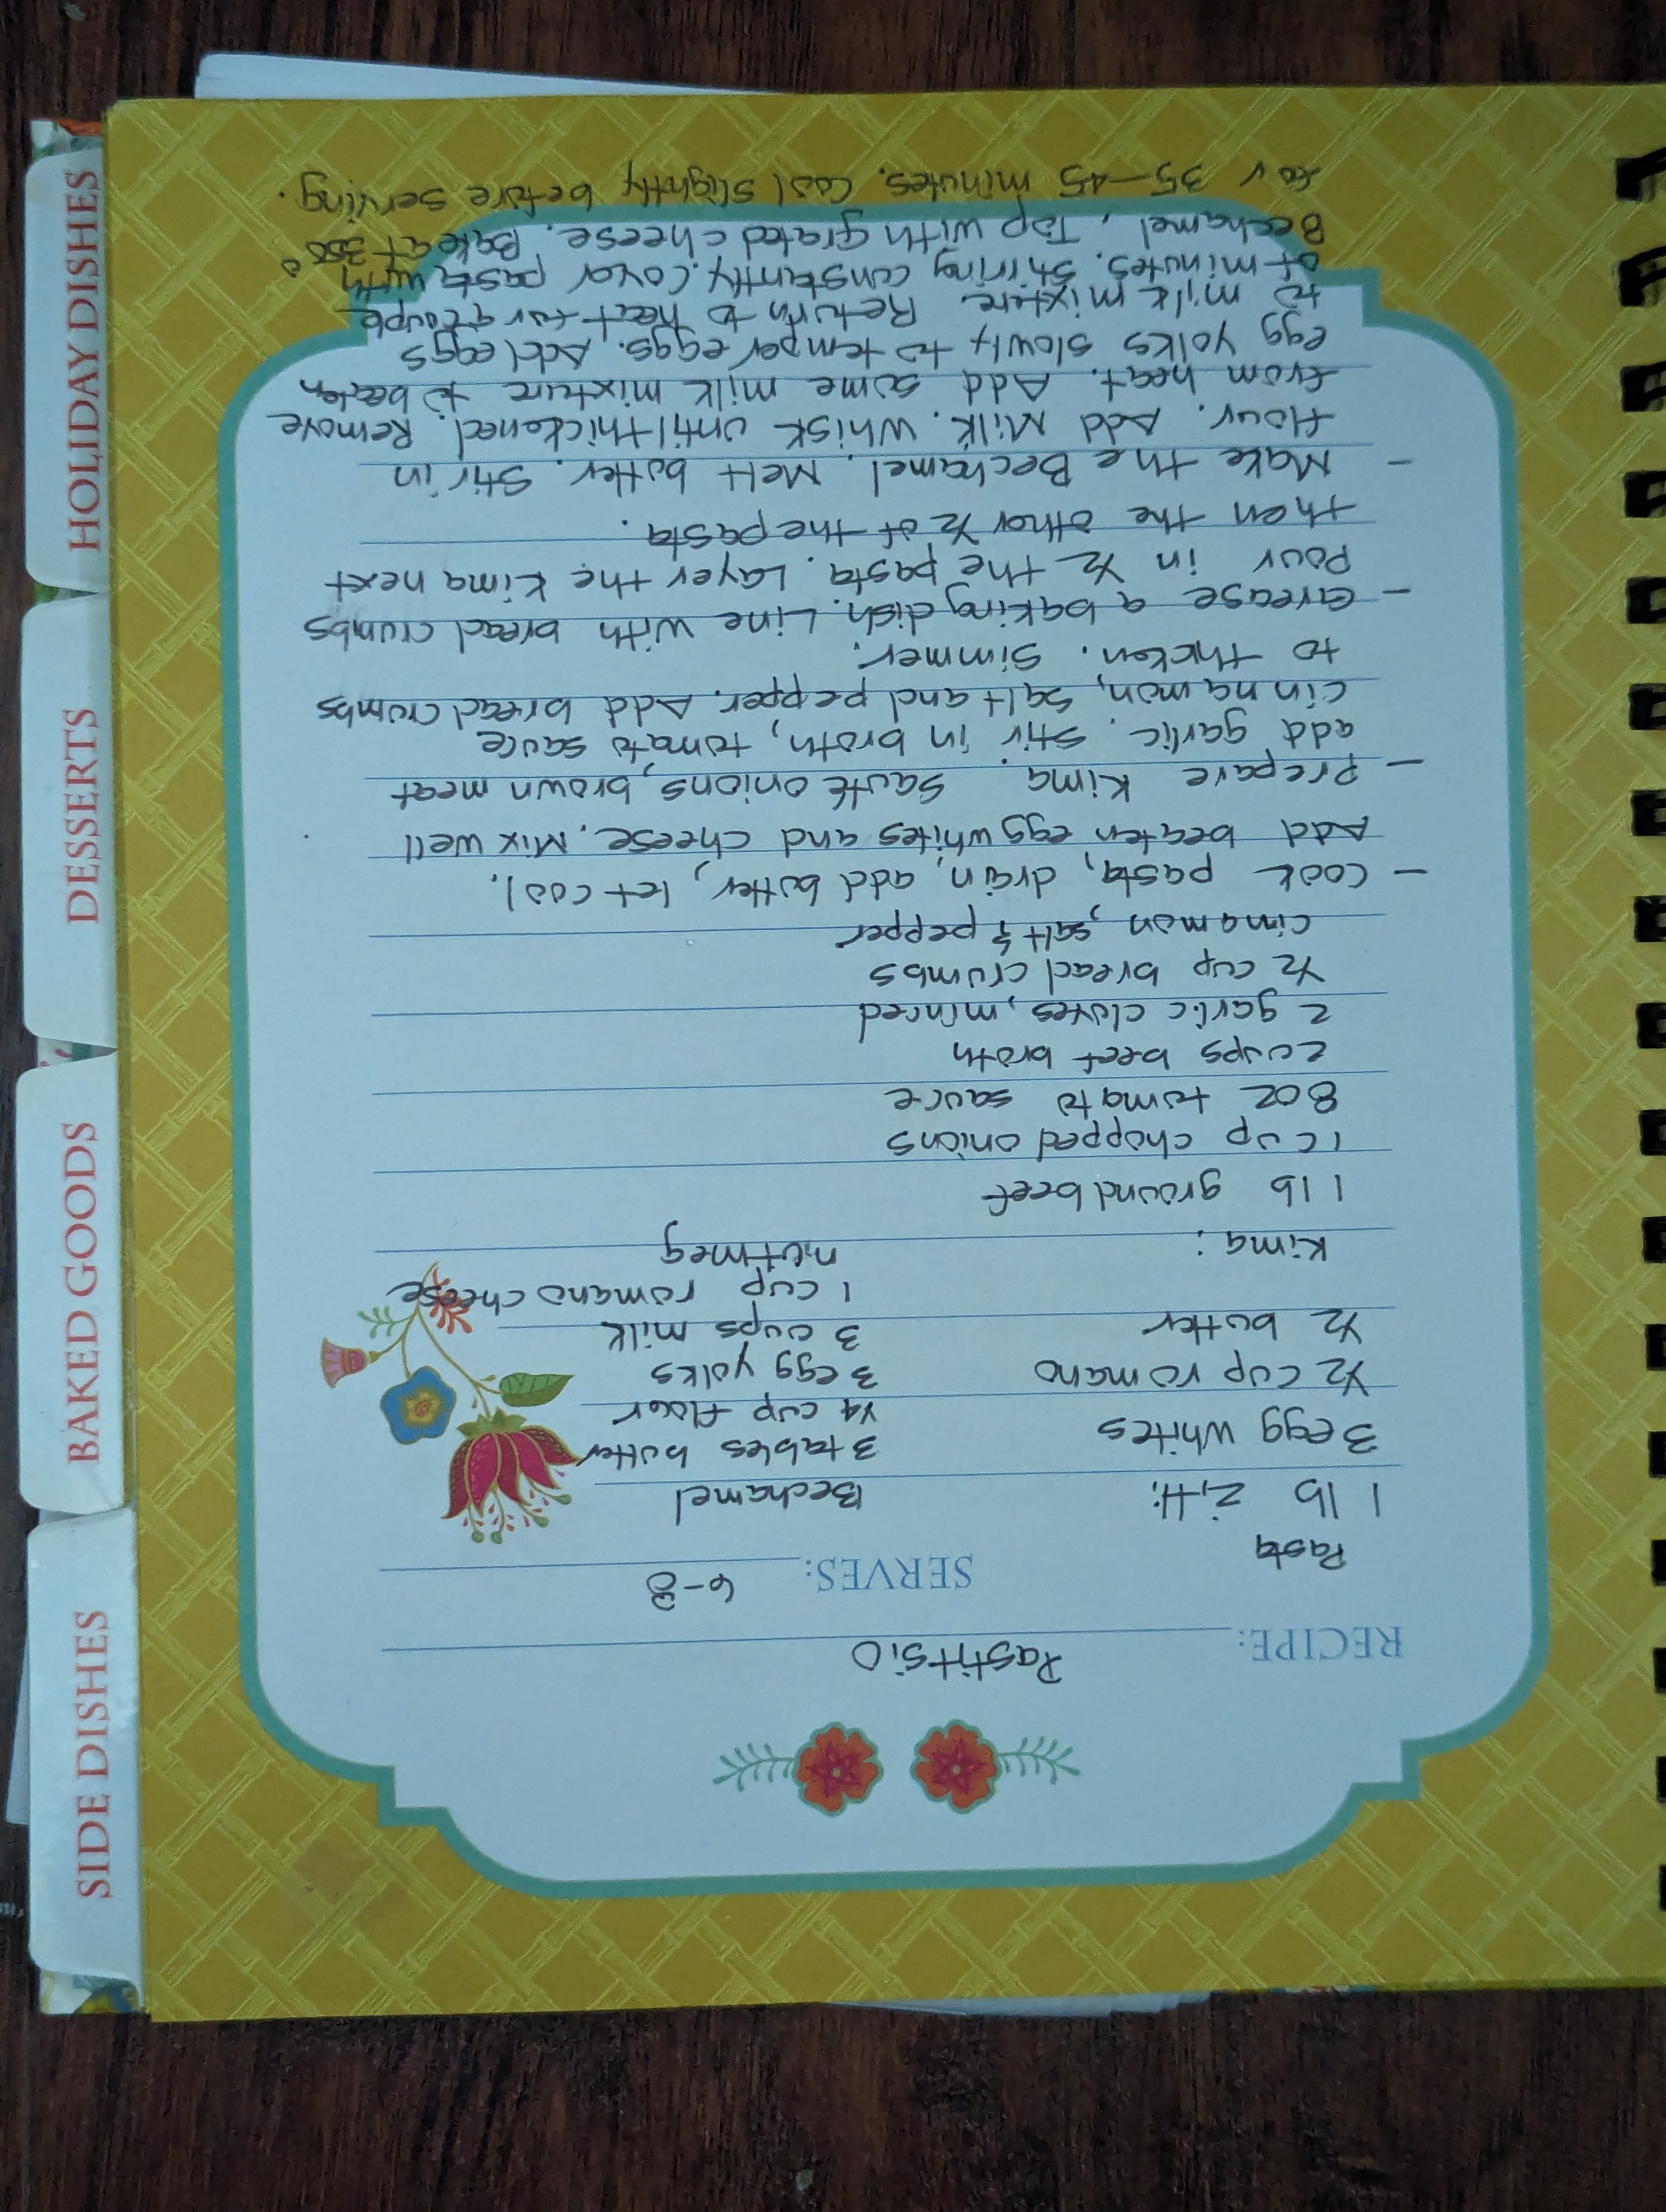 RECIPE: Pastitsio
SERVES: 6-8
Pasta
1 lb ziti
3 egg whites
1/2 cup romano
1/2 butter
Bechamel
3 tables butter
1/4 cup flour
3 egg yolks
3 cups milk
1 cup romano cheese
nutmeg
Kima:
1 lb ground beef
1 cup chopped onions
8 oz tomato sauce
2 cups beef broth
2 garlic cloves, minced
1/2 cup bread crumbs
cinamon, salt & pepper
- Cook pasta, drain, add butter, let cool.
Add beaten egg whites and cheese. Mix well
- Prepare Kima. Sauté onions, brown meat
add garlic. Stir in broth, tomato sauce
cinnamon, salt and pepper. Add bread crumbs
to thicken. Simmer.
- Grease a baking dish. Line with bread crumbs
Pour in 1/2 the pasta. Layer the Kima next
then the other 1/2 of the pasta.
- Make the Bechamel. Melt butter. Stir in
flour. Add Milk. Whisk until thickened. Remove
from heat. Add some milk mixture to beaten
egg yolks slowly to temper eggs. Add eggs
to milk mixture. Return to heat for a couple
of minutes. Stiring constantly. Cover pasta with
Bechamel. Top with grated cheese. Bake at 350°
for 35-45 minutes. Cool slightly before serving.
SIDE DISHES
BAKED GOODS
DESSERTS
HOLIDAY DISHES